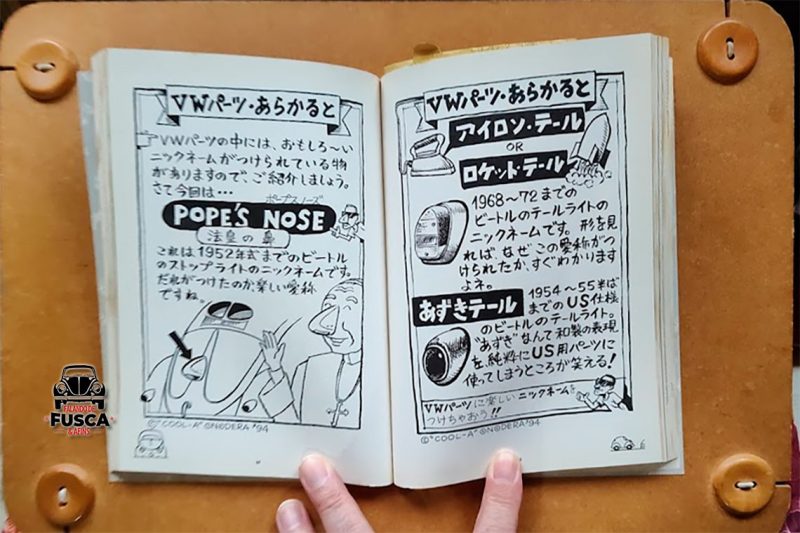 VWパーツ・あらかると
VWパーツの中には、おもしろ〜い
ニックネームがつけられている物
がありますので、ご紹介しましょう。
さて今回は・・・
ポープス ノーズ
POPE'S NOSE
法皇の鼻
これは、1952年式までのビートル
のストップライトのニックネームです。
だれがつけたのか、楽しい愛称
ですね。
©"COOL-A" ONODERA '94
VWパーツ・あらかると
アイロン・テール
OR
ロケット・テール
1968〜72までの
ビートルのテールライトの
ニックネームです。形を見
れば、なぜ、この愛称がつ
けられたか、すぐわかります
よネ。
あずきテール
1954〜55半ば
までのUS仕様
のビートルのテールライト。
"あずき"なんて和製の表現
を、純粋にUS用パーツに
使ってしまうところが笑える!
VWパーツに楽しいニックネームを
つけちゃおう!!
©"COOL-A" ONODERA '94
6
FALANDO DE
FUSCA
& AFINS
FALANDO DE
FUSCA
& AFINS